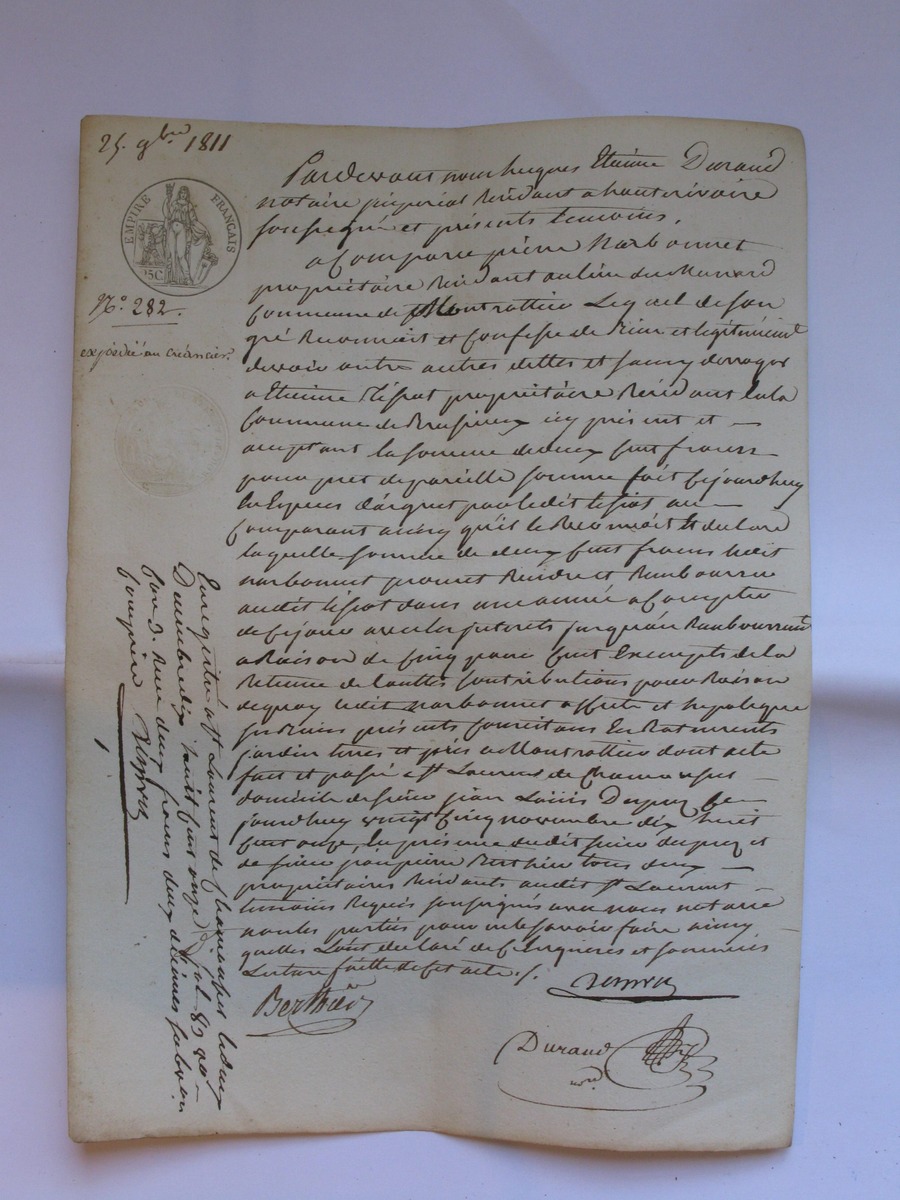 25. 9bre 1811
EMPIRE FRANÇAIS
25C.
N.° 282.
expédié au créancier.
Pardevant nous hugues Etienne Durand
notaire imperial Residant a hauterivoire
soussigné et présents temoins.
a Comparu pierre Narbonnet
propriétaire Residant au lieu du
Commune de Montrottier Lequel de son
gré Reconnait et Confesse de bien et légitimement
devoir entre autres dettes et sans déroger
a Etienne propriétaire Residant en la
Commune de Brussieux icy présent et
acceptant la somme de deux cent francs
pour pret de pareille somme fait cejourdhuy
En Especes d'argent par ledit au
Comparant ainsy qu'il le Reconnoit Et declare
laquelle somme de deux cent francs ledit
narbonnet promet Rendre et Rembourser
audit dans une année a Compter
de ce jour avec les interets jusqu'au Remboursement
a Raison de cinq pour cent Exempts de la
Retenue de touttes contributions pour Raison
dequoy ledit narbonnet affecte et hipoteque
ses biens présents consistans En Batiments
jardin terres et prés a Montrottier dont acte
fait et passé a St Laurent de Chamousset
domicile de sieur jean Louis Dupuy ce
jourdhuy vingt cinq novembre dix huit
cent onze, En présence dudit sieur dupuy et
de sieur jean pierre Berthier tous deux
propriétaires Residants audit St Laurent
temoins Requis soussignés avec nous notaire
non les parties pour ne le savoir faire ainsy
quelles L'ont declaré de ce Enquises et sommées
Lecture faitte de cet acte ./.
Berthier
Durand
nore
Enregistré a St Laurent de chamousset le deux
Decembre dix huit cent onze fol. 89 Ro
Case 3. Reçu deux francs deux décimes subvon
comprise